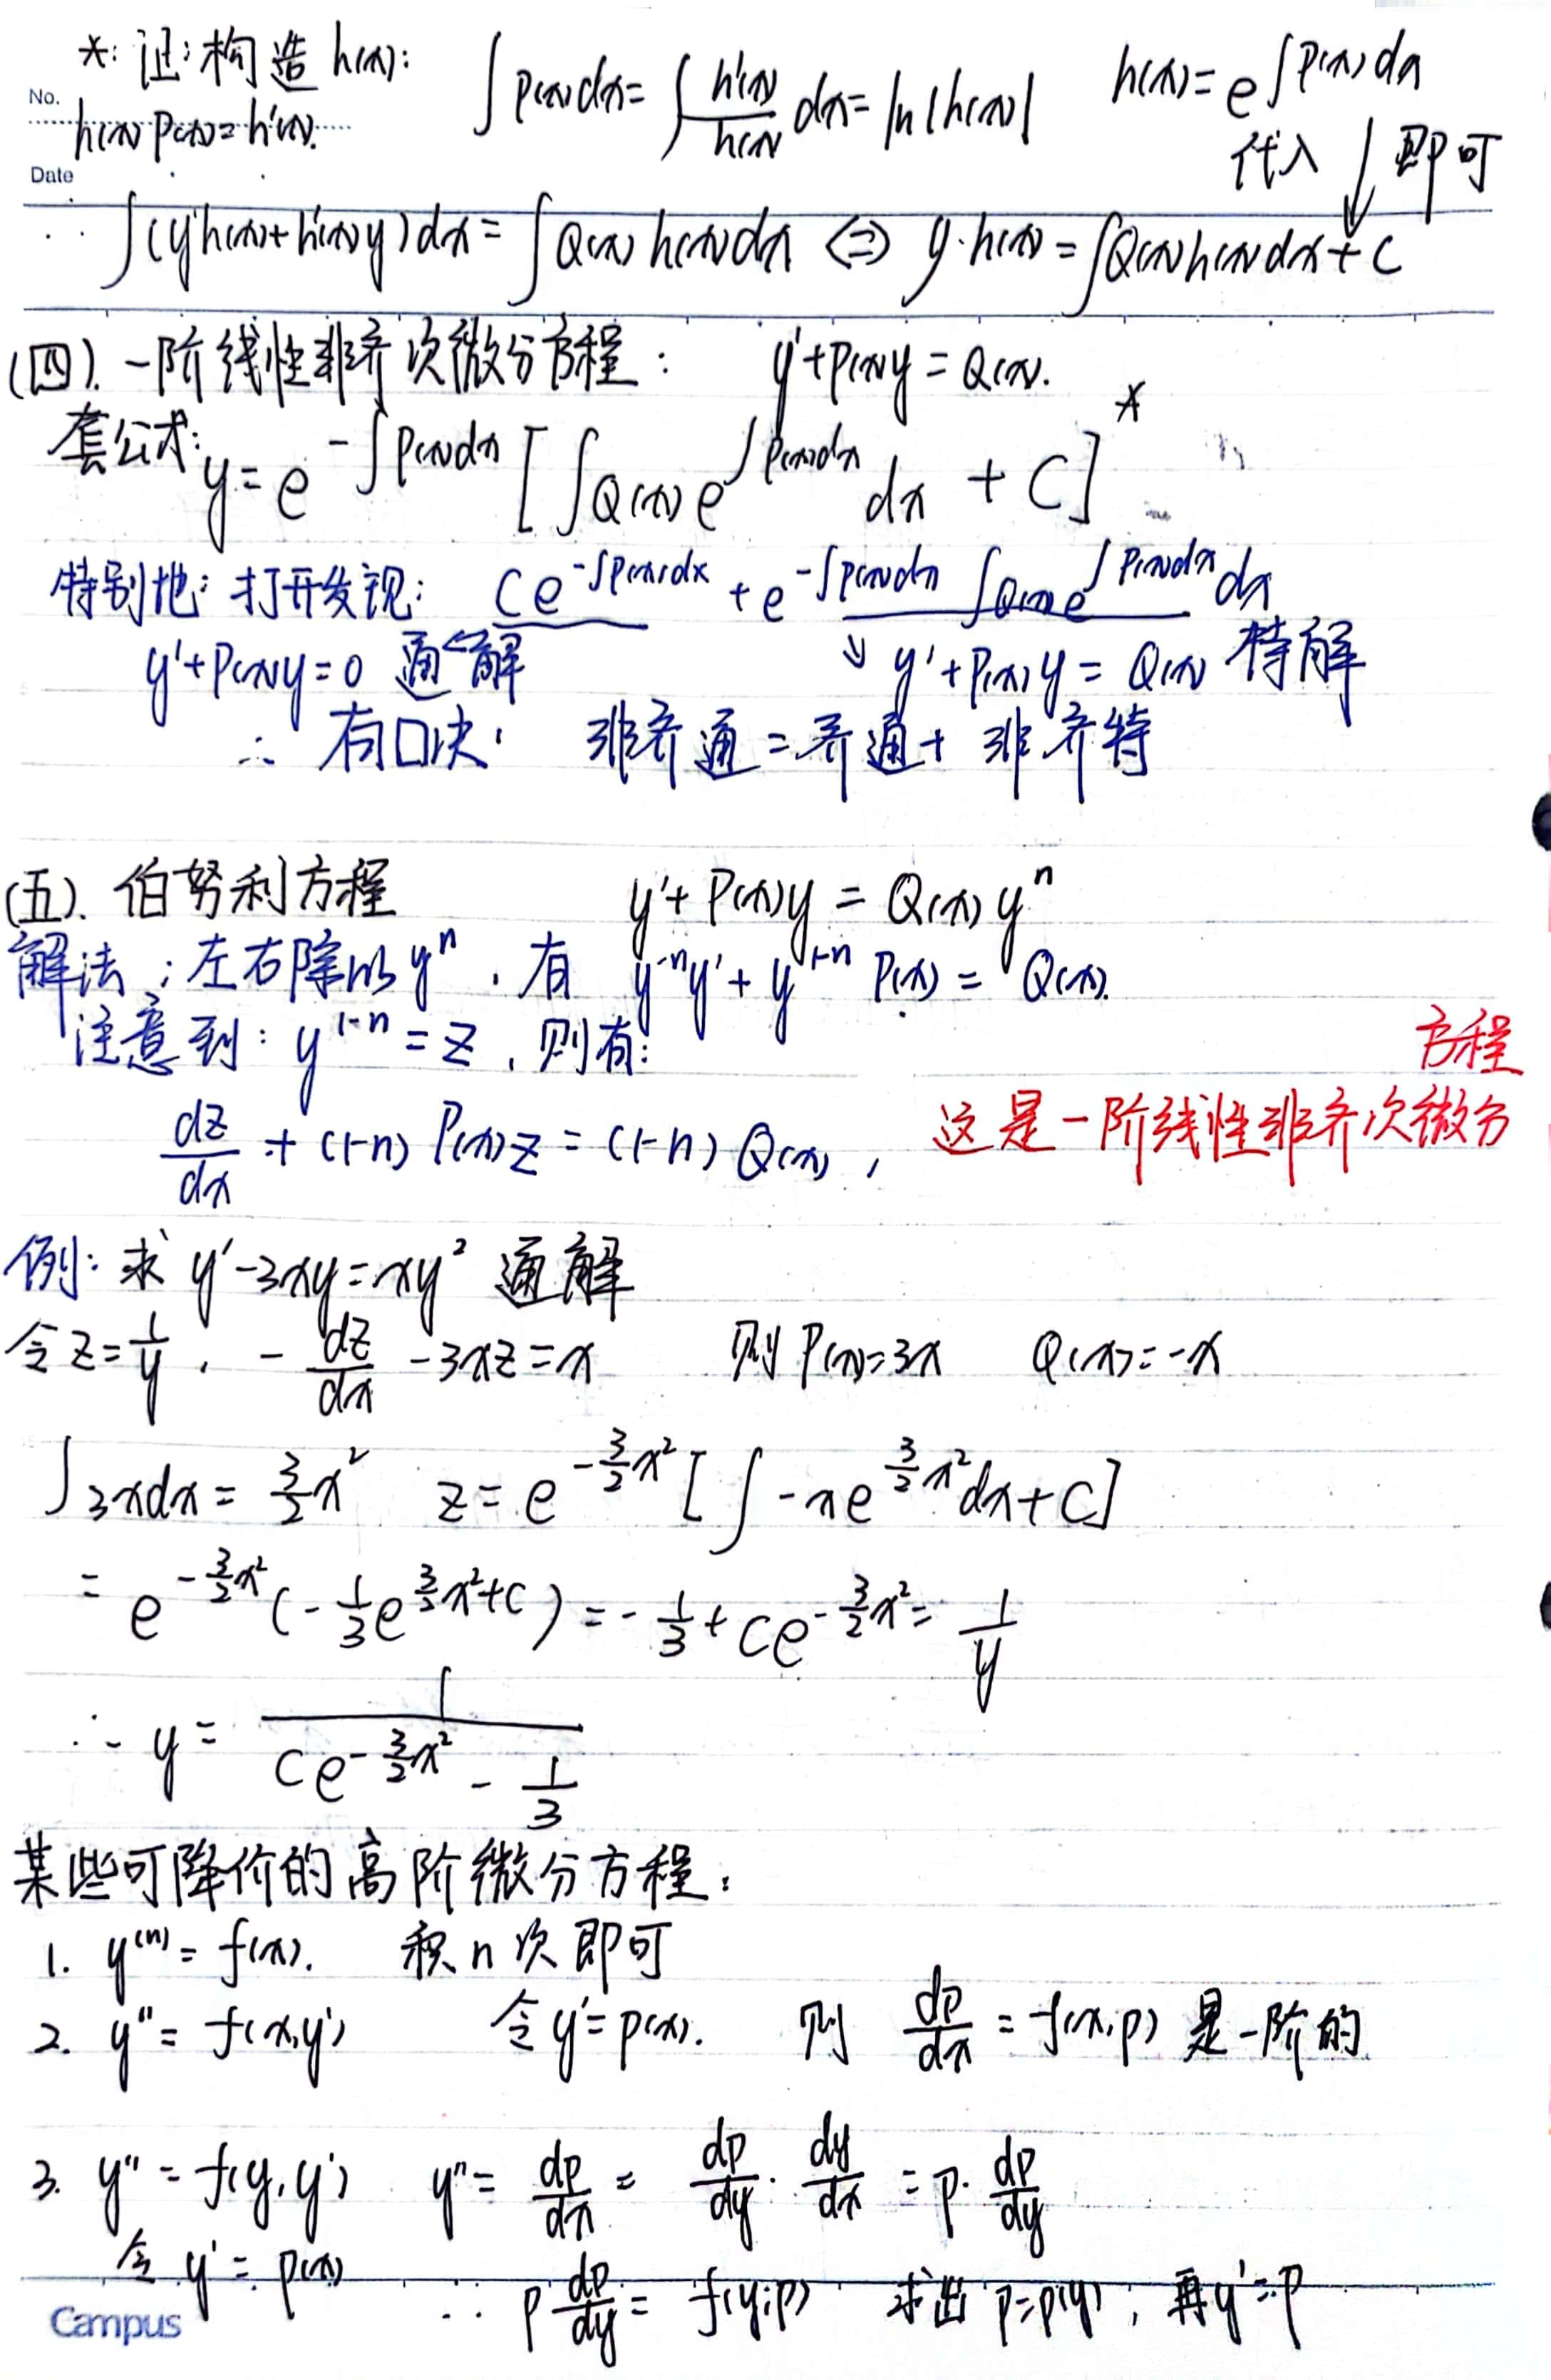 *: 证: 构造 h(x):  ∫P(x)dx = ∫ h'(x)/h(x) dx = ln|h(x)|  h(x) = e^{∫P(x)dx}
No.
h(x)P(x) = h'(x).
代入 ↓ 即可
Date
∴ ∫(y'h(x)+h'(x)y)dx = ∫Q(x)h(x)dx ⇔ y·h(x) = ∫Q(x)h(x)dx + C
(四). 一阶线性非齐次微分方程:  y'+P(x)y = Q(x).
套公式: y = e^{-∫P(x)dx} [∫Q(x)e^{∫P(x)dx} dx + C] *
特别地: 打开发现: Ce^{-∫P(x)dx} + e^{-∫P(x)dx} ∫Q(x)e^{∫P(x)dx} dx
y'+P(x)y=0 通解 ← ↓ y'+P(x)y = Q(x) 特解
∴ 有口决: 非齐通 = 齐通 + 非齐特
(五). 伯努利方程  y'+P(x)y = Q(x)y^n
解法: 左右除以 y^n, 有 y^{-n}y' + y^{1-n} P(x) = Q(x).
注意到: y^{1-n} = z, 则有:
方程
dz/dx + (1-n)P(x)z = (1-n)Q(x), 这是一阶线性非齐次微分
例: 求 y'-3xy=xy² 通解
令 z=1/y, -dz/dx -3xz=x  则 P(x)=3x  Q(x)=-x
∫3xdx = 3/2 x²  z = e^{-3/2 x²} [∫-xe^{3/2 x²}dx+C]
= e^{-3/2 x²} (-1/3 e^{3/2 x²}+C) = -1/3 + Ce^{-3/2 x²} = 1/y
∴ y = 1/(Ce^{-3/2 x²} - 1/3)
某些可降价的高阶微分方程:
1. y^{(n)} = f(x).  积 n 次即可
2. y'' = f(x,y')  令 y'=p(x).  则 dp/dx = f(x,p) 是一阶的
3. y'' = f(y,y')  y'' = dp/dx = dp/dy · dy/dx = p·dp/dy
令 y' = p(x)  ∴ p dp/dy = f(y,p)  求出 p=p(y), 再 y'=p
Campus